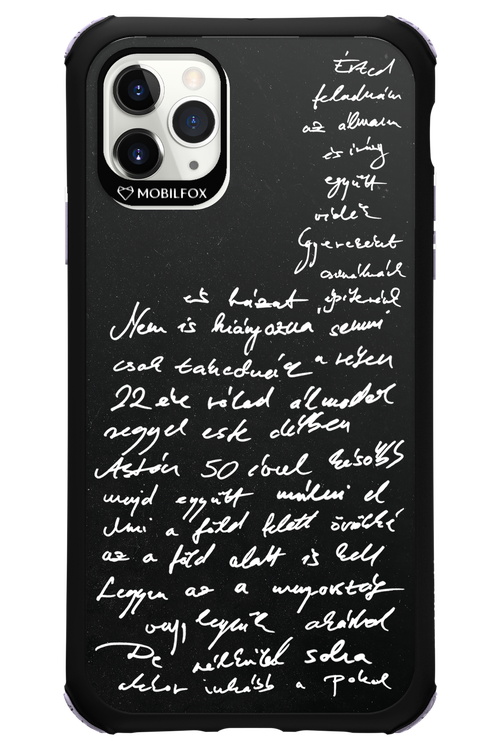 MOBILFOX
Érted
feladnám
az álmam
és így
együtt
vidék
Gyerekeket
csinálnánk
és házat építenénk
Nem is hiányozna semmi
csak takednék a réten
22 éve rólad álmodok
reggel este délben
Aztán 50 évvel később
majd együtt múlni el
Ami a föld felett örökké
az a föld alatt is kell
Legyen az a mennyország
vagy legyünk akárhol
De nélküled soha
akkor inkább a pokol